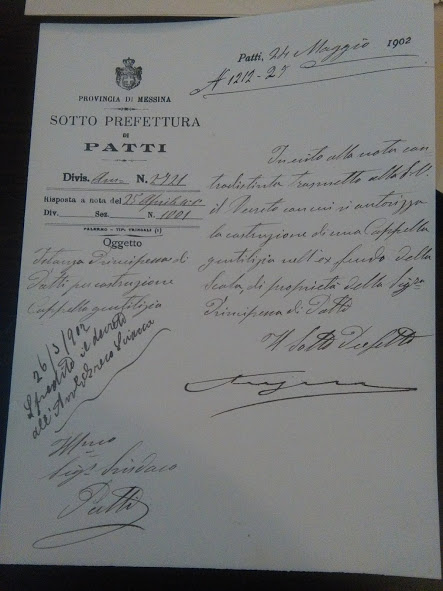 Patti, 24 Maggio 1902
N 1212-27
PROVINCIA DI MESSINA
SOTTO PREFETTURA
DI
PATTI
Divis. N. 2921
Risposta a nota del 25 Aprile
Div. Sez. N. 1001
PALERMO - TIP.
Oggetto
Istanza Principessa di
Patti per costruzione
Cappella gentilizia
In esito alla nota con
tradistinta trasmetto alla S.V.
il Decreto con cui si autorizza
la costruzione di una Cappella
gentilizia nell'ex feudo della
Scala, di proprietà della Sig.ra
Principessa di Patti
Il Sotto Prefetto
26/5/902
Spedito il decreto
all'
Ill.mo
Sig. Sindaco
Patti